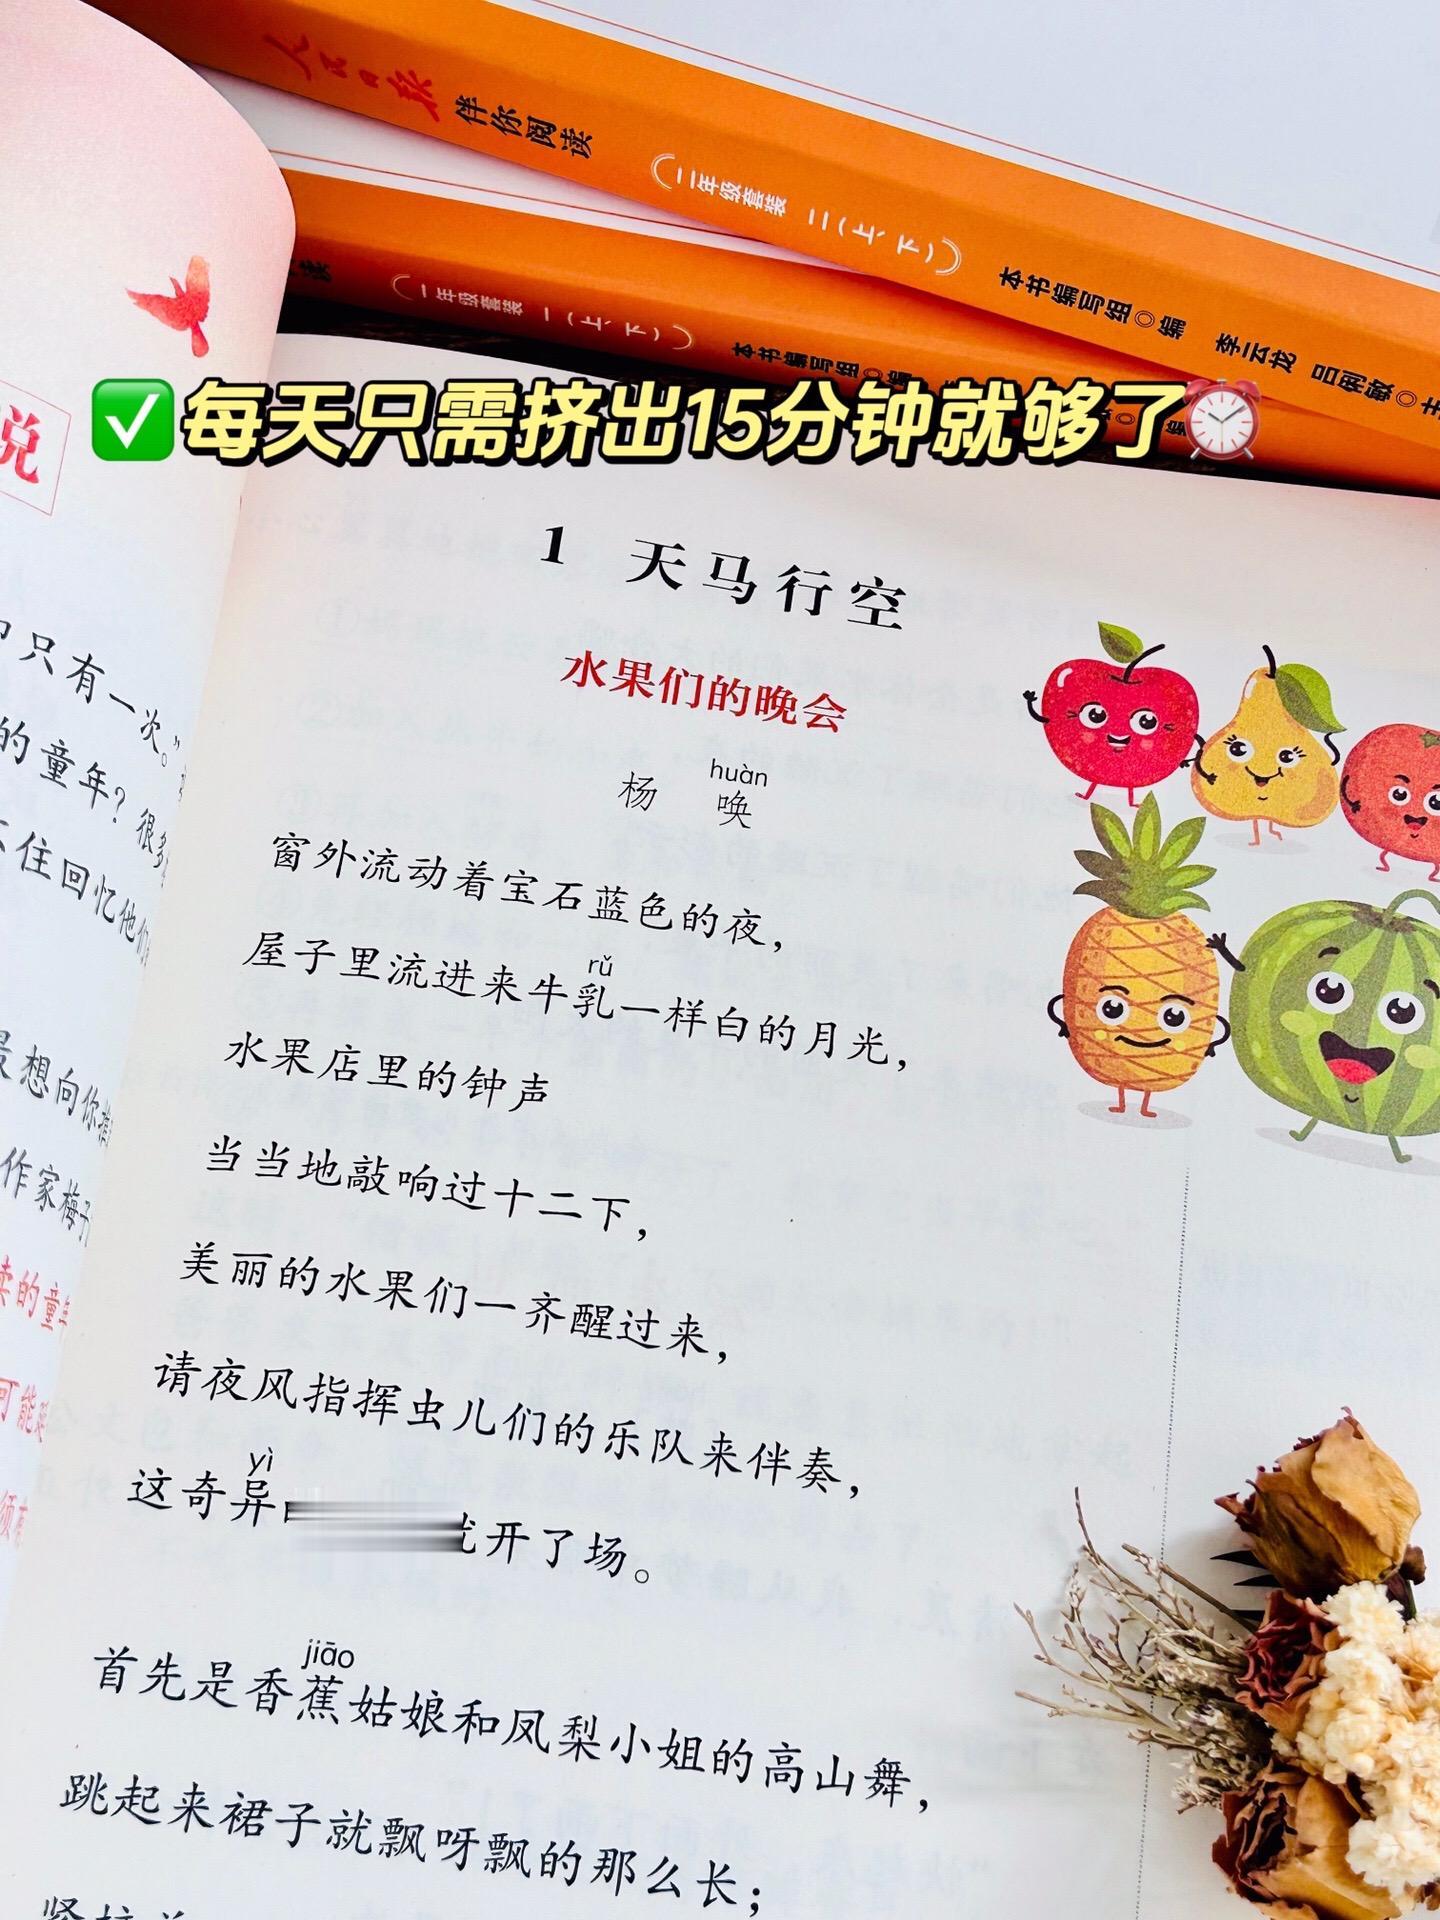 人民日报 伴你阅读 （二年级套装 二（上、下）） 本书编写组◎编 李云龙
（一年级套装 一（上、下）） 本书编写组◎编
✅每天只需挤出15分钟就够了⏰
说
只有一次。”
的童年？很多
住回忆他们
最想向你推
作家梅子
读的童年
可能
须有
1 天马行空
水果们的晚会
huàn
杨 唤
窗外流动着宝石蓝色的夜，
rǔ
屋子里流进来牛乳一样白的月光，
水果店里的钟声
当当地敲响过十二下，
美丽的水果们一齐醒过来，
请夜风指挥虫儿们的乐队来伴奏，
yì
这奇异 开了场。
jiāo
首先是香蕉姑娘和凤梨小姐的高山舞，
跳起来裙子就飘呀飘的那么长；